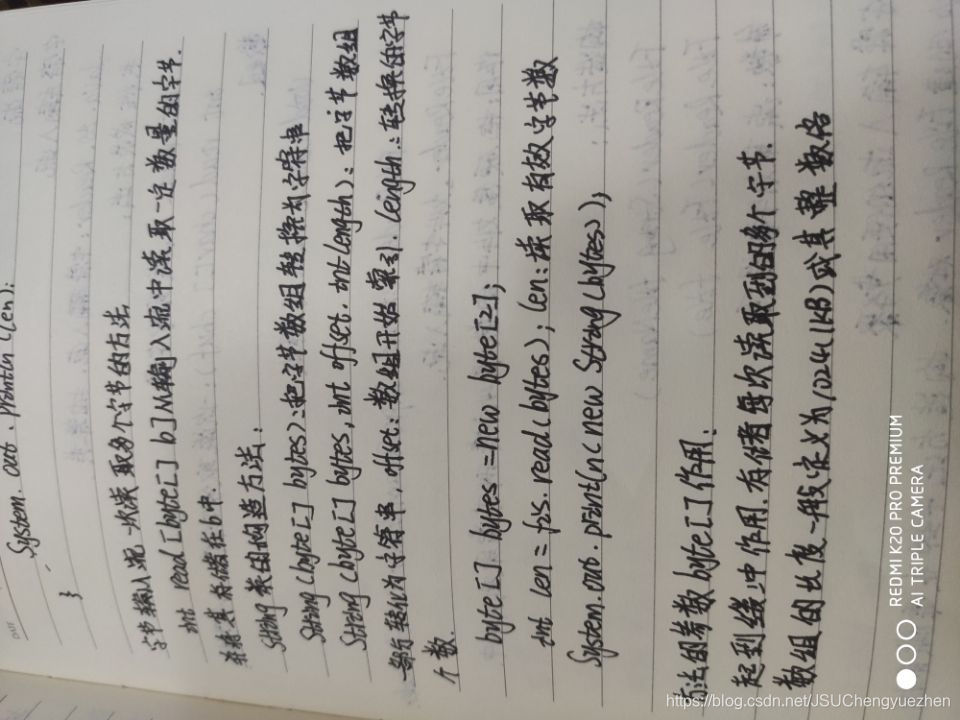 System. out. println (len);
}
字节输入流一次读取多个字节的方法
int read [byte[] b] 从输入流中读取一定数量的字节.
并将其存储在b中.
String 类的构造方法:
String (byte[] bytes): 把字节数组转换为字符串
String (byte[] bytes, int offset. int length): 把字节数组
部分转化为字符串, offset: 数组开始索引. length: 转换的字节
个数.
byte[] bytes = new byte[2];
int len = fis. read (bytes); (len: 读取有效字节数
System. out. println (new String (bytes));
方法的参数 byte[] 作用:
起到缓冲作用. 存储每次读取到的多个字节.
数组的长度一般定义为 1024 (1KB) 或其整数倍
REDMI K20 PRO PREMIUM
AI TRIPLE CAMERA
https://blog.csdn.net/JSUChengyuezhen